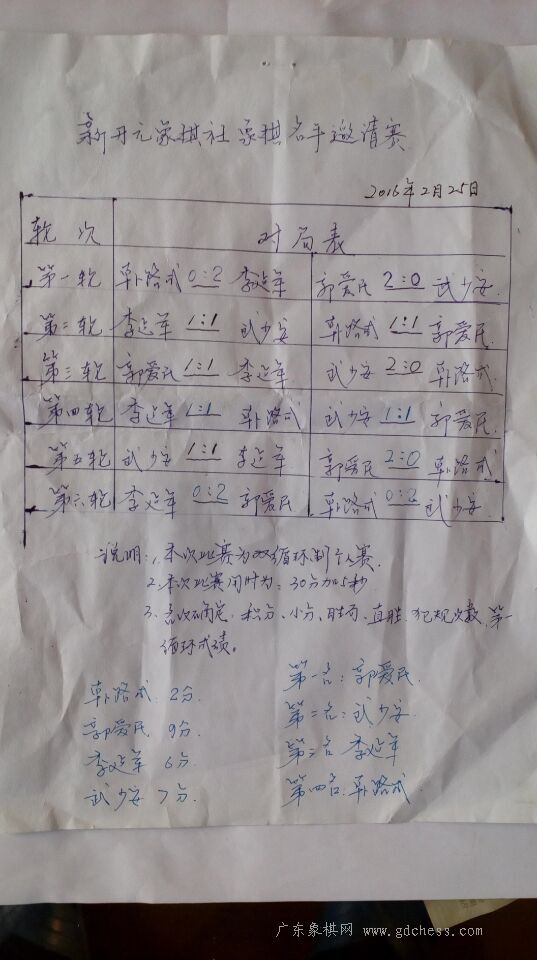 新开元象棋社象棋名手邀请赛
2016年2月25日
轮次 对局表
第一轮 韩路武 0:2 李延军 郭爱民 2:0 武少安
第二轮 李延军 1:1 武少安 韩路武 1:1 郭爱民
第三轮 郭爱民 1:1 李延军 武少安 2:0 韩路武
第四轮 李延军 1:1 韩路武 武少安 1:1 郭爱民
第五轮 武少安 1:1 李延军 郭爱民 2:0 韩路武
第六轮 李延军 0:2 郭爱民 韩路武 0:2 武少安
说明:1,本次比赛为双循环制个人赛.
2.本次比赛用时为:30分加5秒
3、名次确定、积分、小分、胜局、直胜、犯规次数、第一
循环成绩。
韩路武 2分.
郭爱民 9分
李延军 6分
武少安 7分
第一名:郭爱民.
第二名:武少安
第三名 李延军
第四名.韩路武
广东象棋网 www.gdchess.com